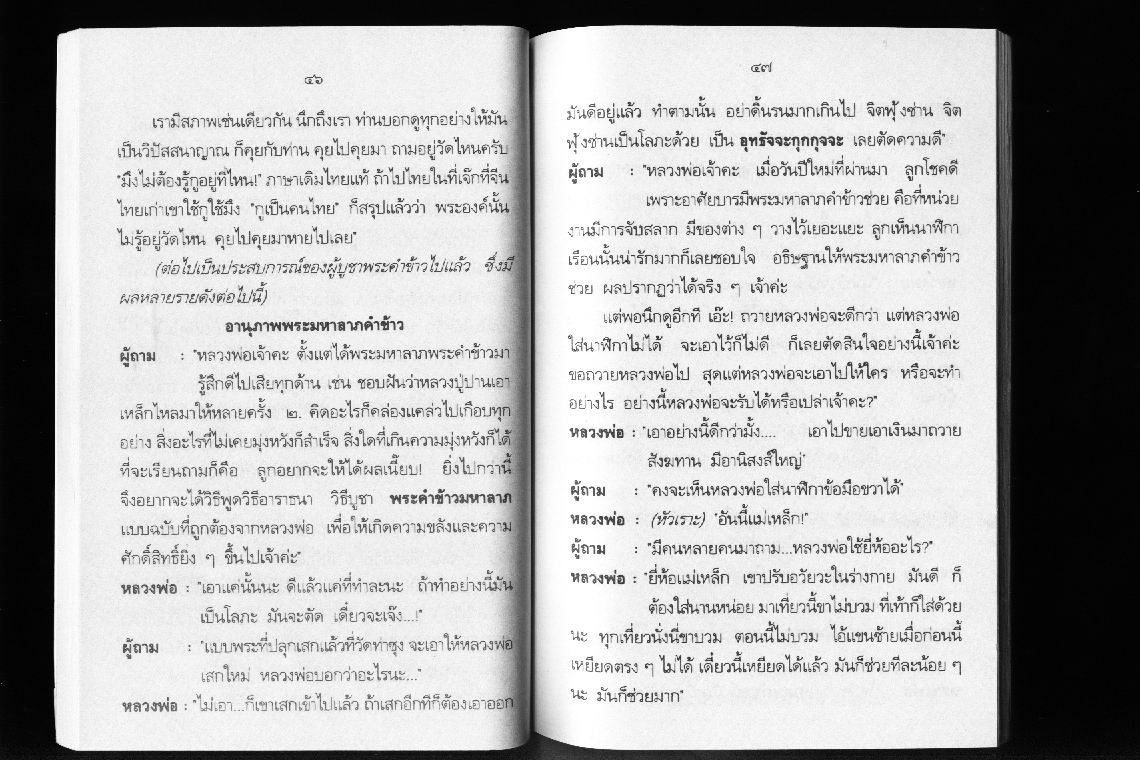 ๔๖
เรามีสภาพเช่นเดียวกัน นึกถึงเรา ท่านบอกดูทุกอย่างให้มัน
เป็นวิปัสสนาญาณ ก็คุยกับท่าน คุยไปคุยมา ถามอยู่วัดไหนครับ
"มึงไม่ต้องรู้กูอยู่ที่ไหน!" ภาษาเดิมไทยแท้ ถ้าไปไทยในที่เจ๊กที่จีน
ไทยเก่าเขาใช้กูใช้มึง "กูเป็นคนไทย" ก็สรุปแล้วว่า พระองค์นั้น
ไม่รู้อยู่วัดไหน คุยไปคุยมาหายไปเลย"
(ต่อไปเป็นประสบการณ์ของผู้บูชาพระคำข้าวไปแล้ว ซึ่งมี
ผลหลายรายดังต่อไปนี้)
อานุภาพพระมหาลาภคำข้าว
ผู้ถาม : "หลวงพ่อเจ้าคะ ตั้งแต่ได้พระมหาลาภพระคำข้าวมา
รู้สึกดีไปเสียทุกด้าน เช่น ชอบฝันว่าหลวงปู่ปานเอา
เหล็กไหลมาให้หลายครั้ง ๒. คิดอะไรก็คล่องแคล่วไปเกือบทุก
อย่าง สิ่งอะไรที่ไม่เคยมุ่งหวังก็สำเร็จ สิ่งใดที่เกินความมุ่งหวังก็ได้
ที่จะเรียนถามก็คือ ลูกอยากจะให้ได้ผลเนี๊ยบ! ยิ่งไปกว่านี้
จึงอยากจะได้วิธีพูดวิธีอาราธนา วิธีบูชา พระคำข้าวมหาลาภ
แบบฉบับที่ถูกต้องจากหลวงพ่อ เพื่อให้เกิดความขลังและความ
ศักดิ์สิทธิ์ยิ่ง ๆ ขึ้นไปเจ้าค่ะ"
หลวงพ่อ : "เอาแค่นั้นนะ ดีแล้วแค่ที่ทำละนะ ถ้าทำอย่างนี้มัน
เป็นโลภะ มันจะตัด เดี๋ยวจะเจ๊ง...!"
ผู้ถาม : "แบบพระที่ปลุกเสกแล้วที่วัดท่าซุง จะเอาให้หลวงพ่อ
เสกใหม่ หลวงพ่อบอกว่าอะไรนะ..."
หลวงพ่อ : "ไม่เอา...ก็เขาเสกเข้าไปแล้ว ถ้าเสกอีกทีก็ต้องเอาออก
๔๗
มันดีอยู่แล้ว ทำตามนั้น อย่าดิ้นรนมากเกินไป จิตฟุ้งซ่าน จิต
ฟุ้งซ่านเป็นโลภะด้วย เป็น อุทธัจจะกุกกุจจะ เลยตัดความดี"
ผู้ถาม : "หลวงพ่อเจ้าคะ เมื่อวันปีใหม่ที่ผ่านมา ลูกโชคดี
เพราะอาศัยบารมีพระมหาลาภคำข้าวช่วย คือที่หน่วย
งานมีการจับสลาก มีของต่าง ๆ วางไว้เยอะแยะ ลูกเห็นนาฬิกา
เรือนนั้นน่ารักมากก็เลยชอบใจ อธิษฐานให้พระมหาลาภคำข้าว
ช่วย ผลปรากฏว่าได้จริง ๆ เจ้าค่ะ
แต่พอนึกดูอีกที เอ๊ะ! ถวายหลวงพ่อจะดีกว่า แต่หลวงพ่อ
ใส่นาฬิกาไม่ได้ จะเอาไว้ก็ไม่ดี ก็เลยตัดสินใจอย่างนี้เจ้าค่ะ
ขอถวายหลวงพ่อไป สุดแต่หลวงพ่อจะเอาไปให้ใคร หรือจะทำ
อย่างไร อย่างนี้หลวงพ่อจะรับได้หรือเปล่าเจ้าคะ?"
หลวงพ่อ : "เอาอย่างนี้ดีกว่ามั้ง.... เอาไปขายเอาเงินมาถวาย
สังฆทาน มีอานิสงส์ใหญ่"
ผู้ถาม : "คงจะเห็นหลวงพ่อใส่นาฬิกาข้อมือขวาได้"
หลวงพ่อ : (หัวเราะ) "อันนี้แม่เหล็ก!"
ผู้ถาม : "มีคนหลายคนมาถาม...หลวงพ่อใช้ยี่ห้ออะไร?"
หลวงพ่อ : "ยี่ห้อแม่เหล็ก เขาปรับอวัยวะในร่างกาย มันดี ก็
ต้องใส่นานหน่อย มาเที่ยวนี้ขาไม่บวม ที่เท้าก็ใส่ด้วย
นะ ทุกเที่ยวนั่งนี่ขาบวม ตอนนี้ไม่บวม ไอ้แขนซ้ายเมื่อก่อนนี้
เหยียดตรง ๆ ไม่ได้ เดี๋ยวนี้เหยียดได้แล้ว มันก็ช่วยทีละน้อย ๆ
นะ มันก็ช่วยมาก"